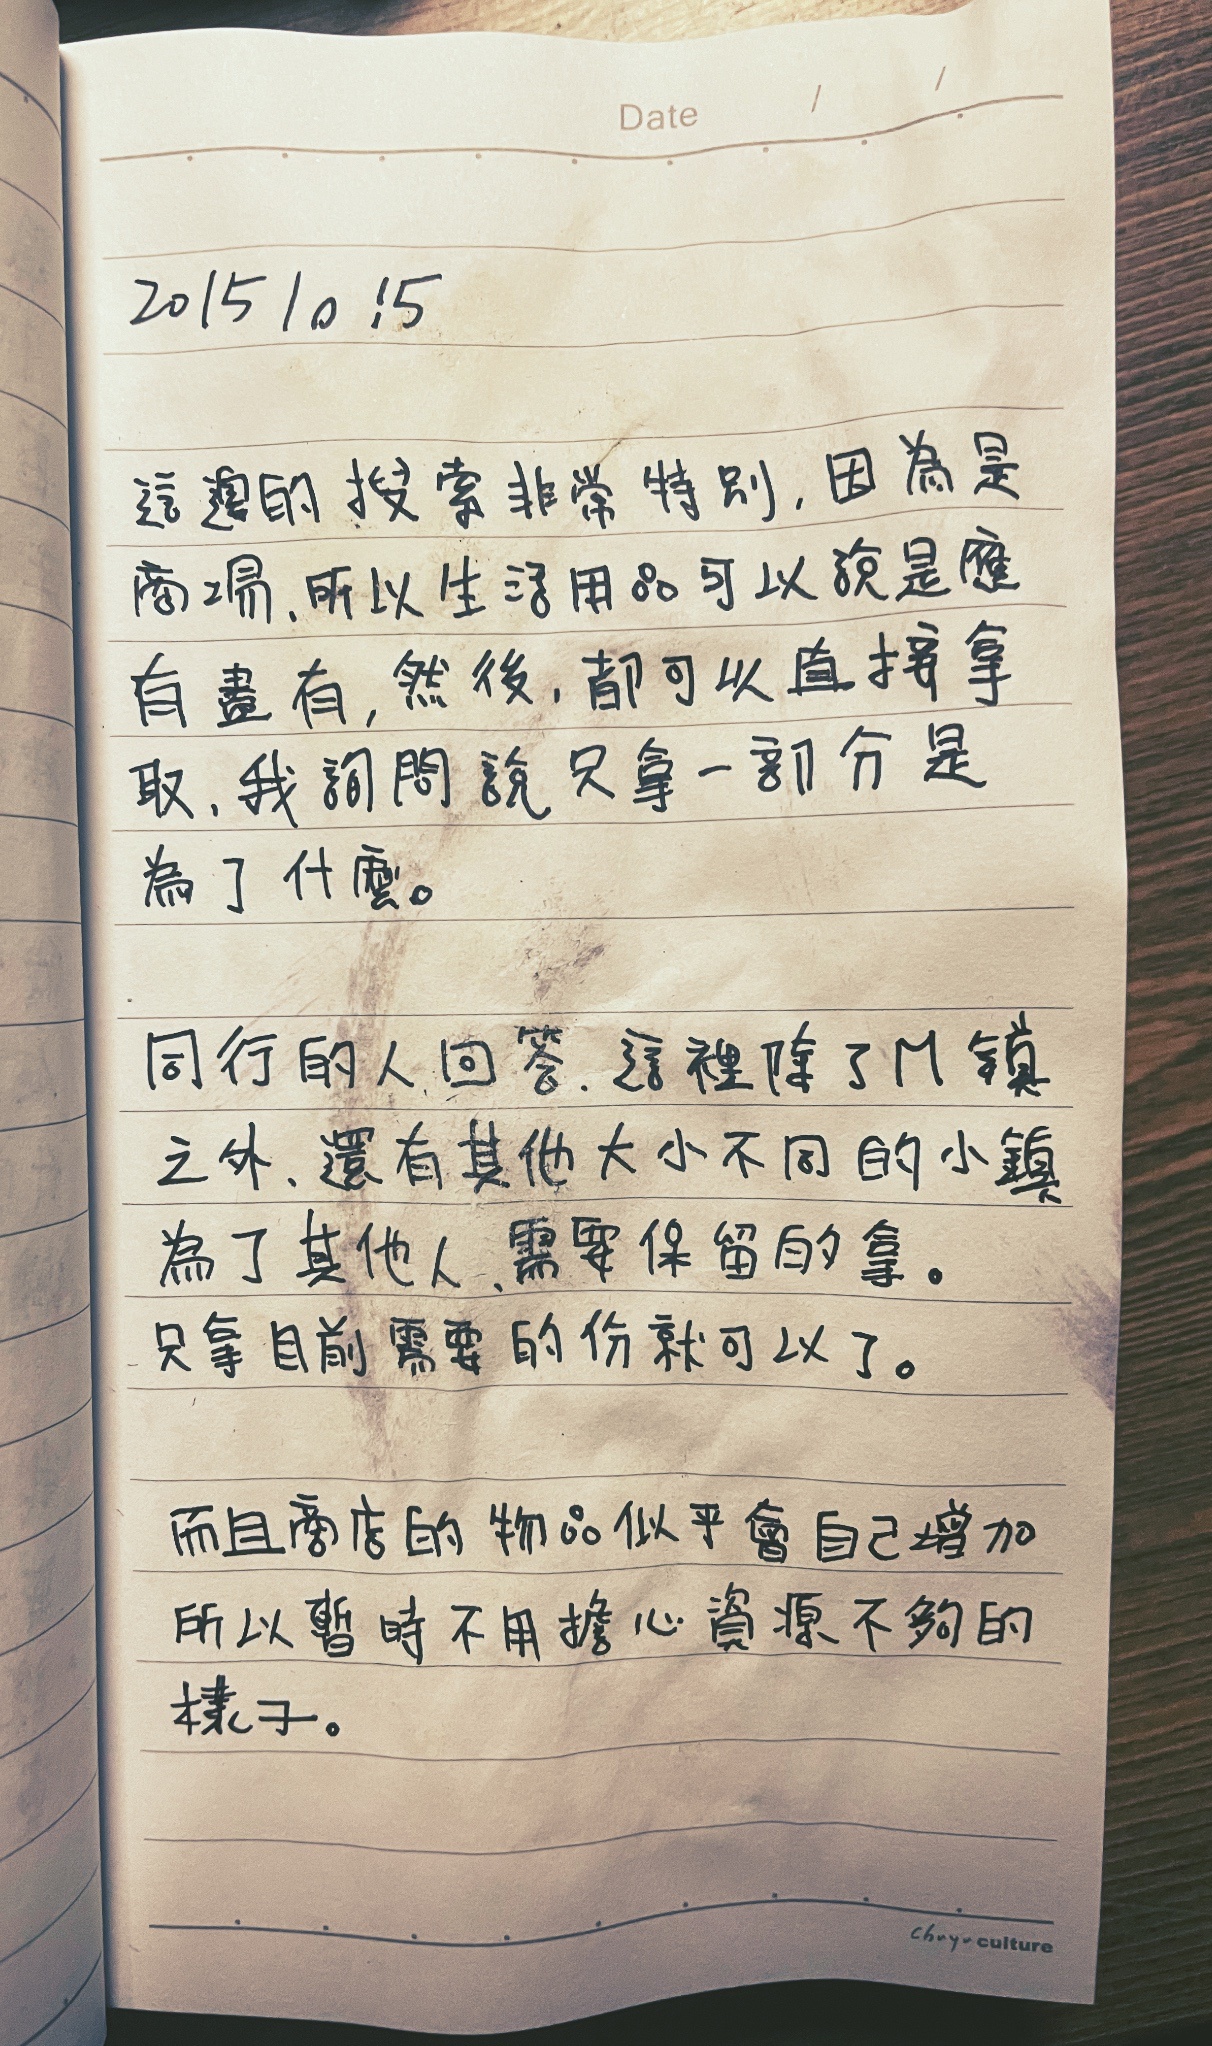 Date / /
2015 10 15
這邊的搜索非常特別,因為是
商場、所以生活用品可以說是應
有盡有,然後,都可以直接拿
取,我詢問說只拿一部分是
為了什麼。
同行的人回答、這裡除了M鎮
之外、還有其他大小不同的小鎮
為了其他人、需要保留的拿。
只拿目前需要的份就可以了。
而且商店的物品似乎會自己增加
所以暫時不用擔心資源不夠的
樣子。
culture